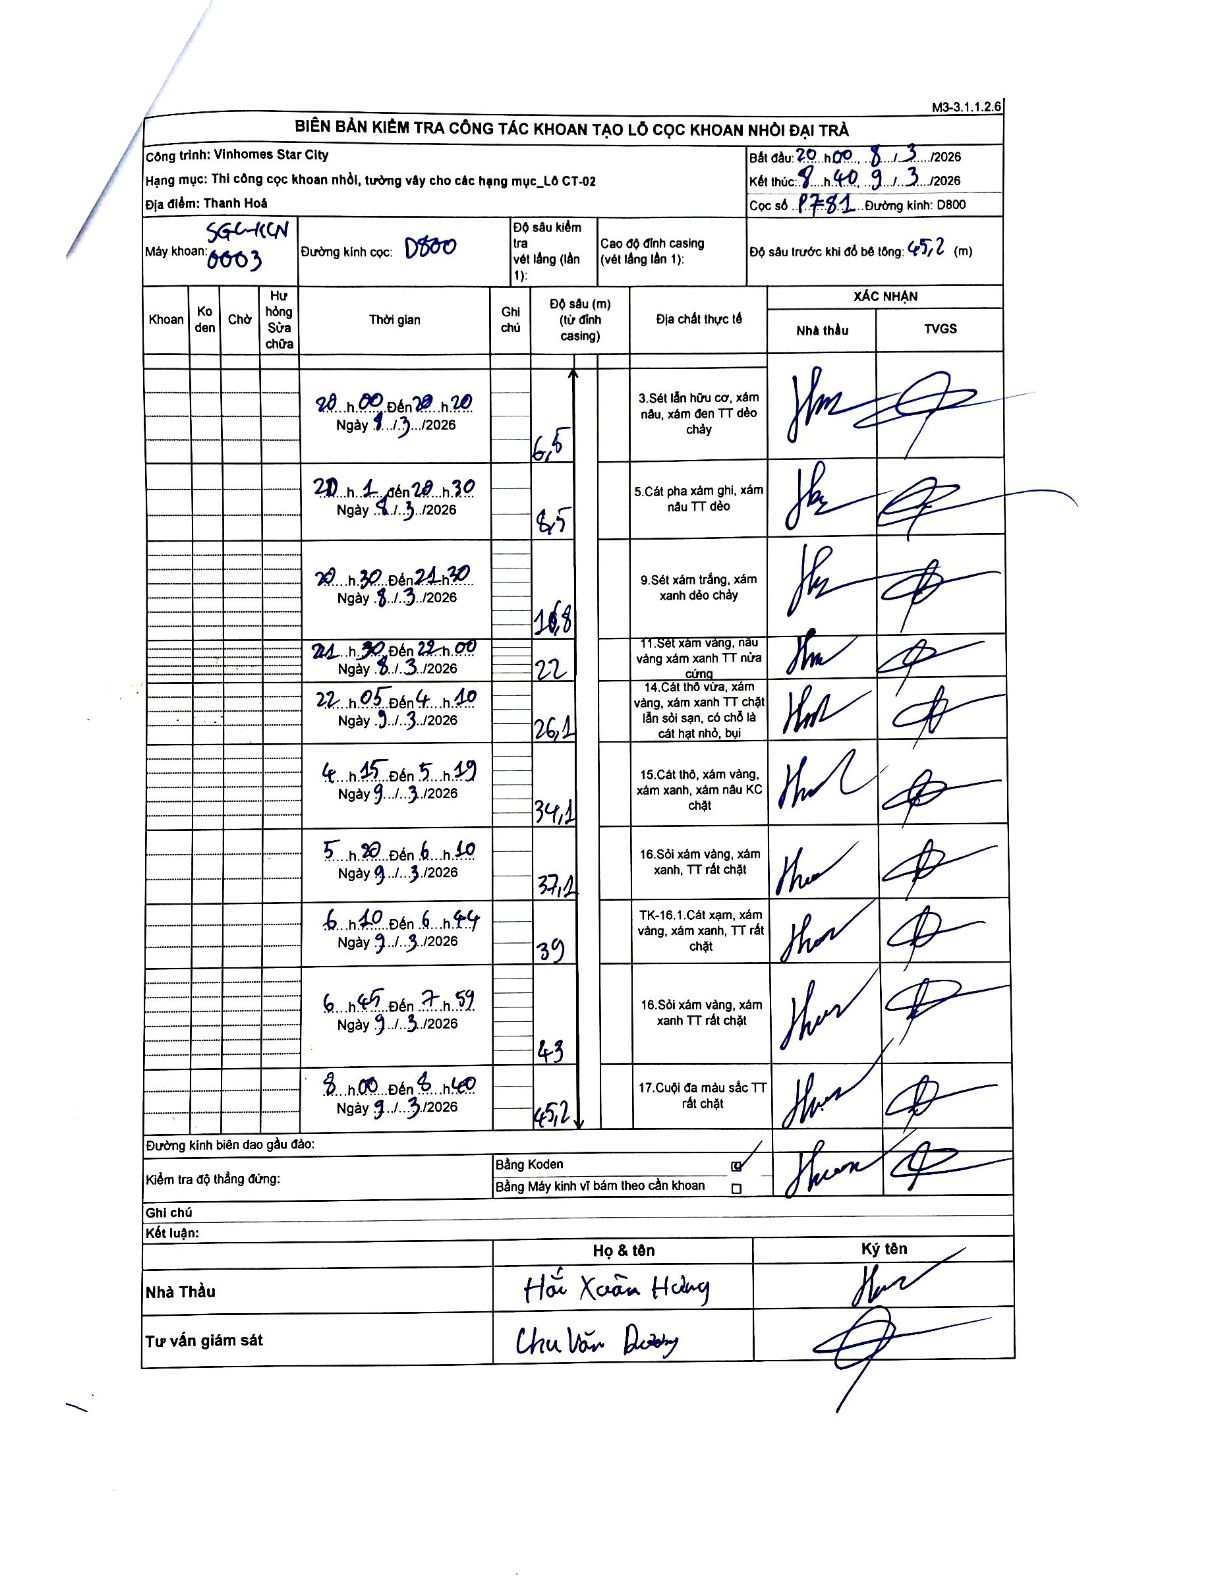 M3-3.1.1.2.6
BIÊN BẢN KIỂM TRA CÔNG TÁC KHOAN TẠO LỖ CỌC KHOAN NHỒI ĐẠI TRÀ
Công trình: Vinhomes Star City
Bắt đầu: 20 h 00, 8 / 3 /2026
Hạng mục: Thi công cọc khoan nhồi, tường vây cho các hạng mục_Lô CT-02
Kết thúc: 8 h 40, 9 / 3 /2026
Địa điểm: Thanh Hoá
Cọc số P781 Đường kính: D800
Máy khoan: SGC-KCN 0003
Đường kính cọc: D800
Độ sâu kiểm tra vét lắng (lần 1):
Cao độ đỉnh casing (vét lắng lần 1):
Độ sâu trước khi đổ bê tông: 45,2 (m)
Khoan
Ko den
Chờ
Hư hỏng Sửa chữa
Thời gian
Ghi chú
Độ sâu (m) (từ đỉnh casing)
Địa chất thực tế
XÁC NHẬN
Nhà thầu
TVGS
20 h 00 Đến 20 h 20
Ngày 8 / 3 /2026
6,5
3.Sét lẫn hữu cơ, xám nâu, xám đen TT dẻo chảy
h đến 20 h 30
Ngày 8 / 3 /2026
8,5
5.Cát pha xám ghi, xám nâu TT dẻo
20 h 30 Đến 21 h 30
Ngày 8 / 3 /2026
16,8
9.Sét xám trắng, xám xanh dẻo chảy
21 h 30 Đến 22 h 00
Ngày 8 / 3 /2026
22
11.Sét xám vàng, nâu vàng xám xanh TT nửa cứng
22 h 05 Đến 4 h 10
Ngày 9 / 3 /2026
26,1
14.Cát thô vừa, xám vàng, xám xanh TT chặt lẫn sỏi sạn, có chỗ là cát hạt nhỏ, bụi
4 h 15 Đến 5 h 19
Ngày 9 / 3 /2026
34,1
15.Cát thô, xám vàng, xám xanh, xám nâu KC chặt
5 h 20 Đến 6 h 10
Ngày 9 / 3 /2026
37,1
16.Sỏi xám vàng, xám xanh, TT rất chặt
6 h 10 Đến 6 h 44
Ngày 9 / 3 /2026
39
TK-16.1.Cát xạm, xám vàng, xám xanh, TT rất chặt
6 h 45 Đến 7 h 59
Ngày 9 / 3 /2026
43
16.Sỏi xám vàng, xám xanh TT rất chặt
8 h 00 Đến 8 h 40
Ngày 9 / 3 /2026
45,2
17.Cuội đa màu sắc TT rất chặt
Đường kính biên dao gầu đào:
Kiểm tra độ thẳng đứng:
Bằng Koden
Bằng Máy kinh vĩ bám theo cần khoan
Ghi chú
Kết luận:
Họ & tên
Ký tên
Nhà Thầu
Xuân Hưng
Tư vấn giám sát
Chu Văn Dương